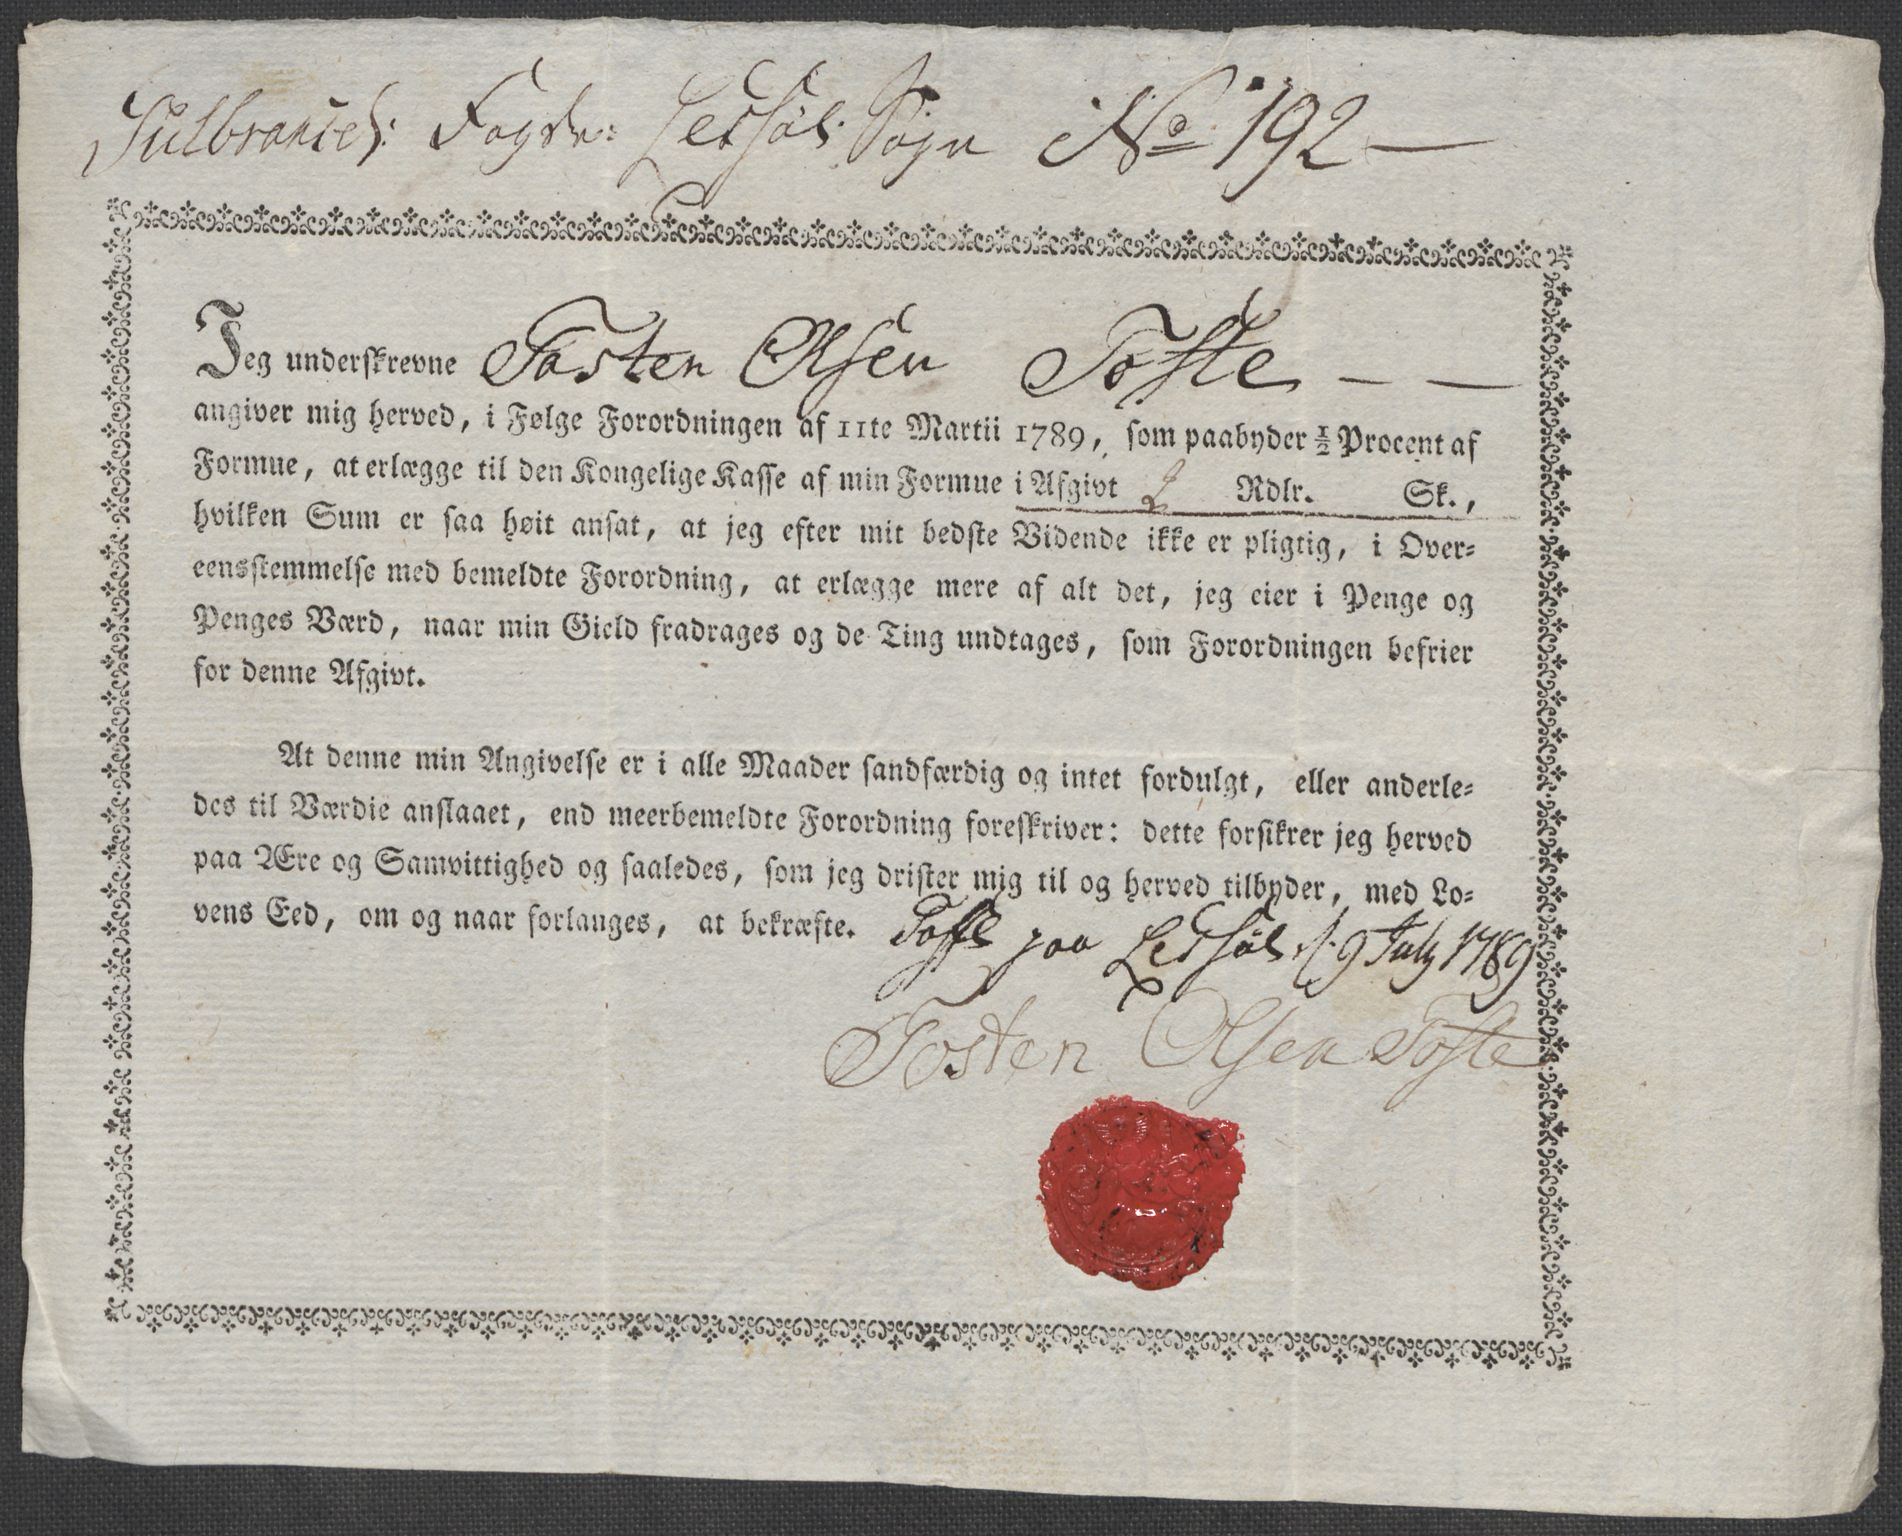 Gulbrandsd: Fogde: Lessøe Sogn No 192 —
Jeg underskrevne Tosten Olsen Tofte — —
angiver mig herved, i Følge Forordningen af 11te Martii 1789, som paabyder ½ Procent af
Formue, at erlægge til den Kongelige Kasse af min Formue i Afgivt 2 Rdlr. Sk.,
hvilken Sum er saa høit ansat, at jeg efter mit bedste Vidende ikke er pligtig, i Over-
eensstemmelse med bemeldte Forordning, at erlægge mere af alt det, jeg eier i Penge og
Penges Værd, naar min Gield fradrages og de Ting undtages, som Forordningen befrier
for denne Afgivt.
At denne min Angivelse er i alle Maader sandfærdig og intet fordulgt, eller anderle-
des til Værdie anslaaet, end meerbemeldte Forordning foreskriver: dette forsikrer jeg herved
paa Ære og Samvittighed og saaledes, som jeg drister mig til og herved tilbyder, med Lo-
vens Eed, om og naar forlanges, at bekræfte. Tofte paa Lessøe d: 9 July 1789
Tosten Olsen Tofte